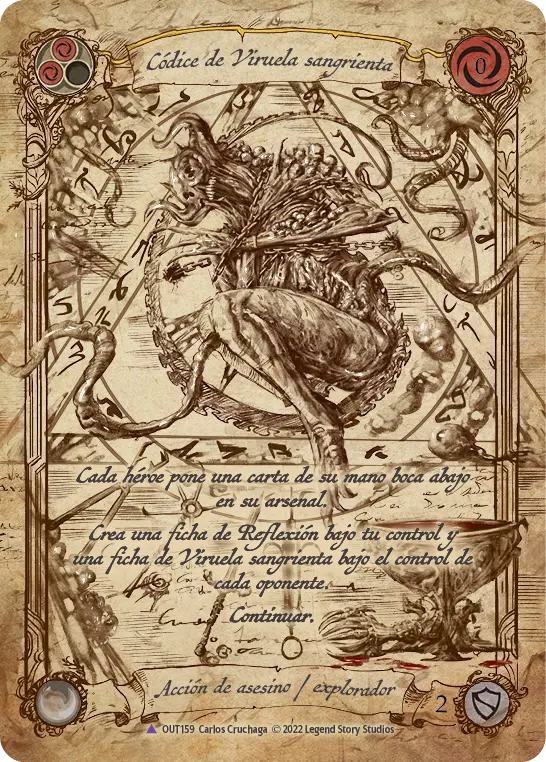 Códice de Viruela sangrienta
0
Cada héroe pone una carta de su mano boca abajo
en su arsenal.
Crea una ficha de Reflexión bajo tu control y
una ficha de Viruela sangrienta bajo el control de
cada oponente.
Continuar.
Acción de asesino / explorador
2
OUT159 Carlos Cruchaga © 2022 Legend Story Studios